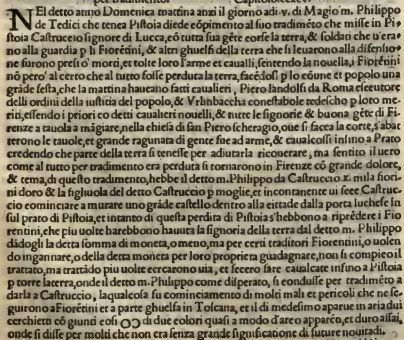 NEl detto anno Domenica mattina anzi il giorno adi .v. di Magio m. Philippo
de Tedici che tenea Pistoia diede cōpimento al suo tradimēto che misse in Pi
stoia Castruccio signore di Lucca, cō tutta sua gēte corse la terra, & soldati che u'era
no alla guardia p li Fiorētini, & altri ghuelfi della terra che si leuarono alla difensio
ne furono presi o' morti, et tolte loro l'arme et caualli, sentendo la nouella, i Fiorētini
nō pero' al certo che al tutto fosse perduta la terra, facēdosi p lo cōune et popolo una
grāde festa, che la mattina haueano fatti caualieri, Piero landolfi da Roma esecutore
delli ordini della iustitia del popolo, & Vrlinbaccha conestabole tedescho p loro me
riti, essendo i priori co detti caualieri nouelli, & tutte le signorie & buona gēte di Fi
renze a tauola a māgiare, nella chiesa di san Piero scheragio, oue si facea la corte, s'abat
terono le tauole, et grande ragunata di gente fue ad arme, & caualcossi infino a Prato
credendo che parte della terra si tenesse per adiutarla ricouerare, ma sentito il uero
come al tutto per tradimento era perduta si tornarono in Firenze cō grande dolore,
& tema, di questo tradimento, hebbe il detto m. Philippo da Castruccio .x. mila fiori
ni doro & la figliuola del detto Castruccio p moglie, et incontanente ui fece Castruc
cio cominciare a murare uno grāde castello dentro alla cittade dalla porta luchese in
sul prato di Pistoia, et intanto di questa perdita di Pistoia s'hebbono a riprēdere i Fio
rentini, che piu uolte harebbono hauuta la signoria della terra dal detto m. Philippo
dādogli la detta somma di moneta, o meno, ma per certi traditori Fiorentini, o uolen
do ingannare, o della detta moneta per loro propieta guadagnare, non si compieo il
trattato, ma trattādo piu uolte cercarono uia, et fecero fare caualcate infino a Pistoia
p torre la terra, onde il detto m. Philippo come disperato, si condusse per tradimēto a
darla a Castruccio, laqualcosa fu cominciamento di molti mali et pericoli che ne se
guirono a Fiorētini et a parte ghuelfa in Toscana, et il di medesimo aparue in aria dui
cerchietti cō giunti cosi ↀ di due colori quasi a modo d'arco apparēn, et duro assai,
onde si disse per molti che non era senza grande significatione di future nouitadi.